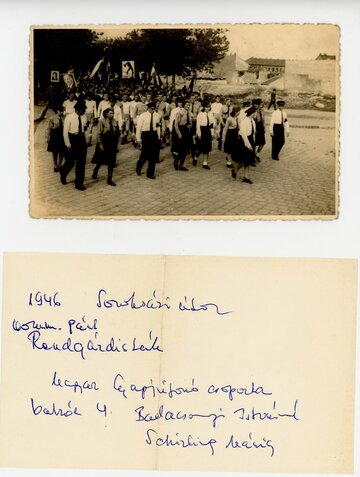 1946 Soroksári úton
komm. párt
Rendgárdisták
Magyar Gyapjúfonó csoportja
balról 4. Badacsonyi Istvánné
Schirling Mária